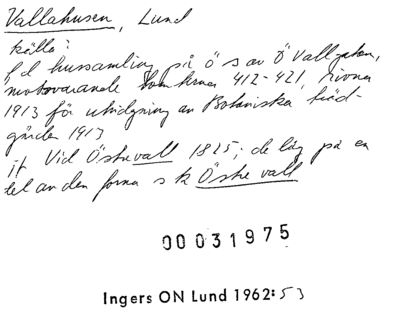 Vallahusen, Lund
källa:
f d hussamling på ö s av Ö Vallgatan,
motsvarande tomterna 412-421, rivna
1913 för utvidgning av Botaniska träd-
gården 1913
jf Vid Östre vall 1825; de låg på en
del av den forna s k Östre vall
00031975
Ingers ON Lund 1962:53